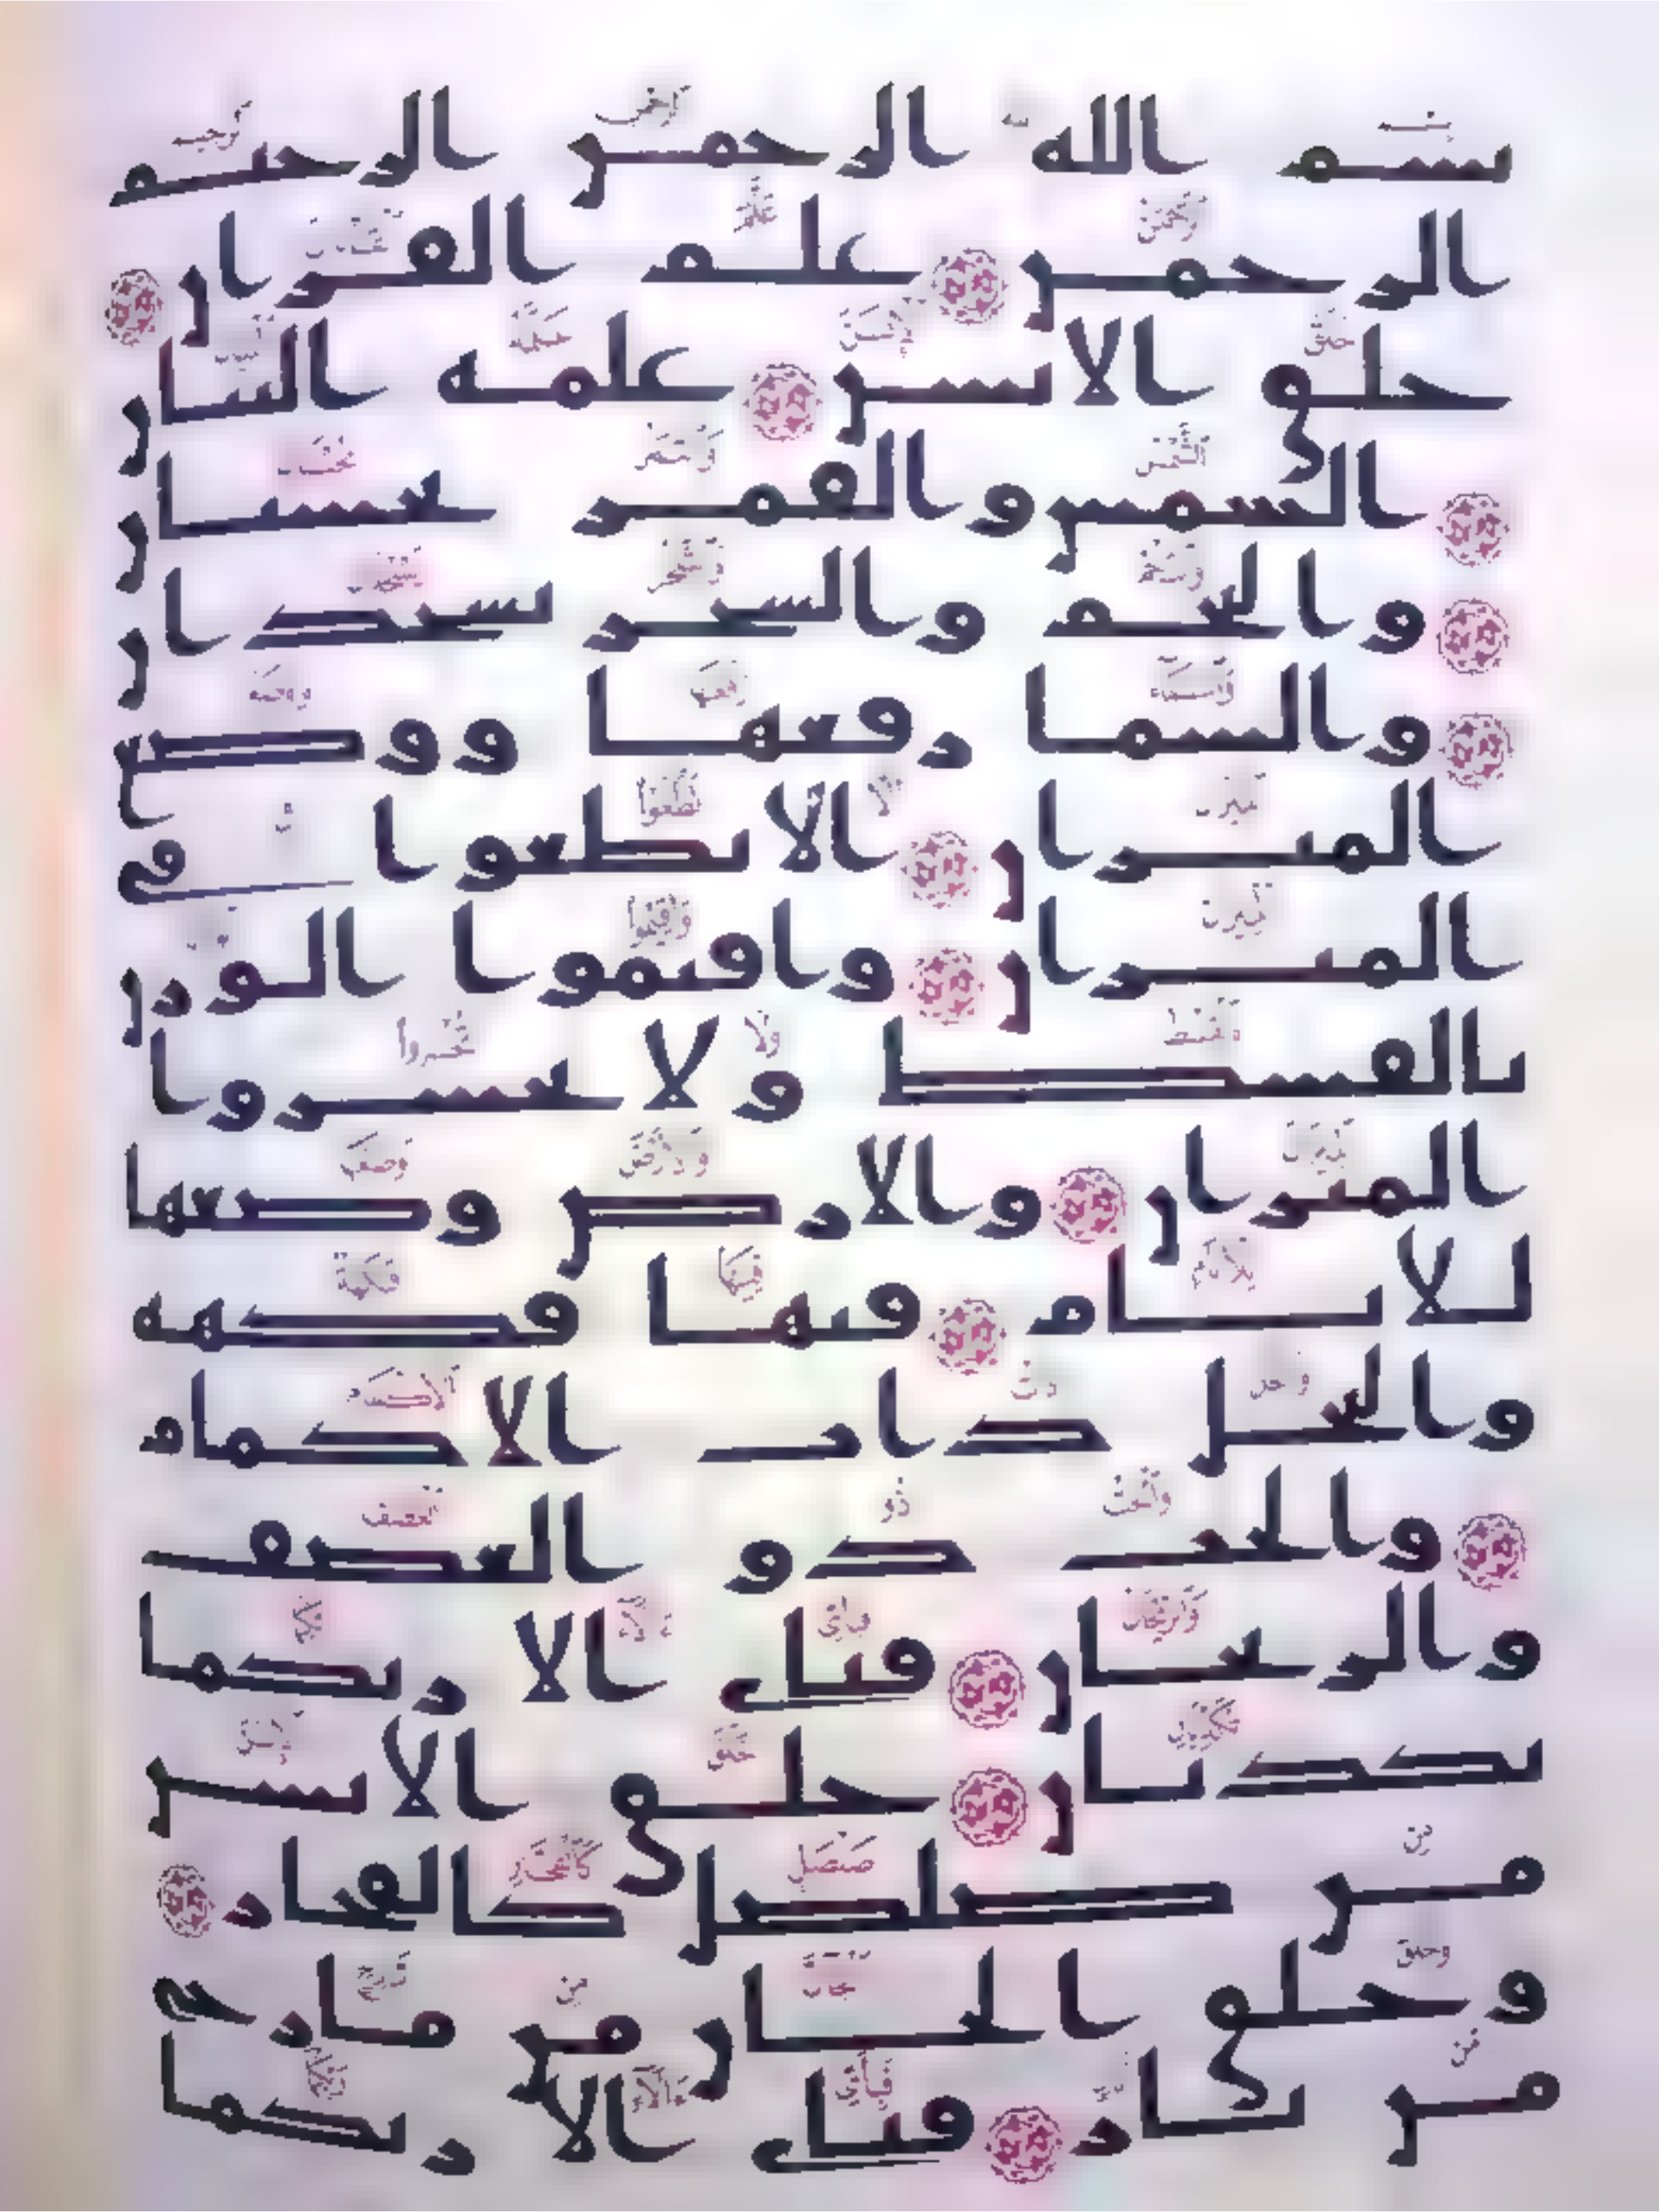 بسم الله الرحمن الرحيم
الرحمن علم القران
خلق الانسن علمه البيان
الشمس والقمر بحسبان
والنجم والشجر يسجدان
والسما رفعها ووضع
الميزان الا تطغوا في
الميزان واقيموا الوزن
بالقسط ولا تخسروا
الميزان والارض وضعها
للانام فيها فكهة
والنخل ذات الاكمام
والحب ذو العصف
والريحان فباي الا ربكما
تكذبان خلق الانسن
من صلصل كالفخار
وخلق الجان من مارج
من نار فباي الا ربكما